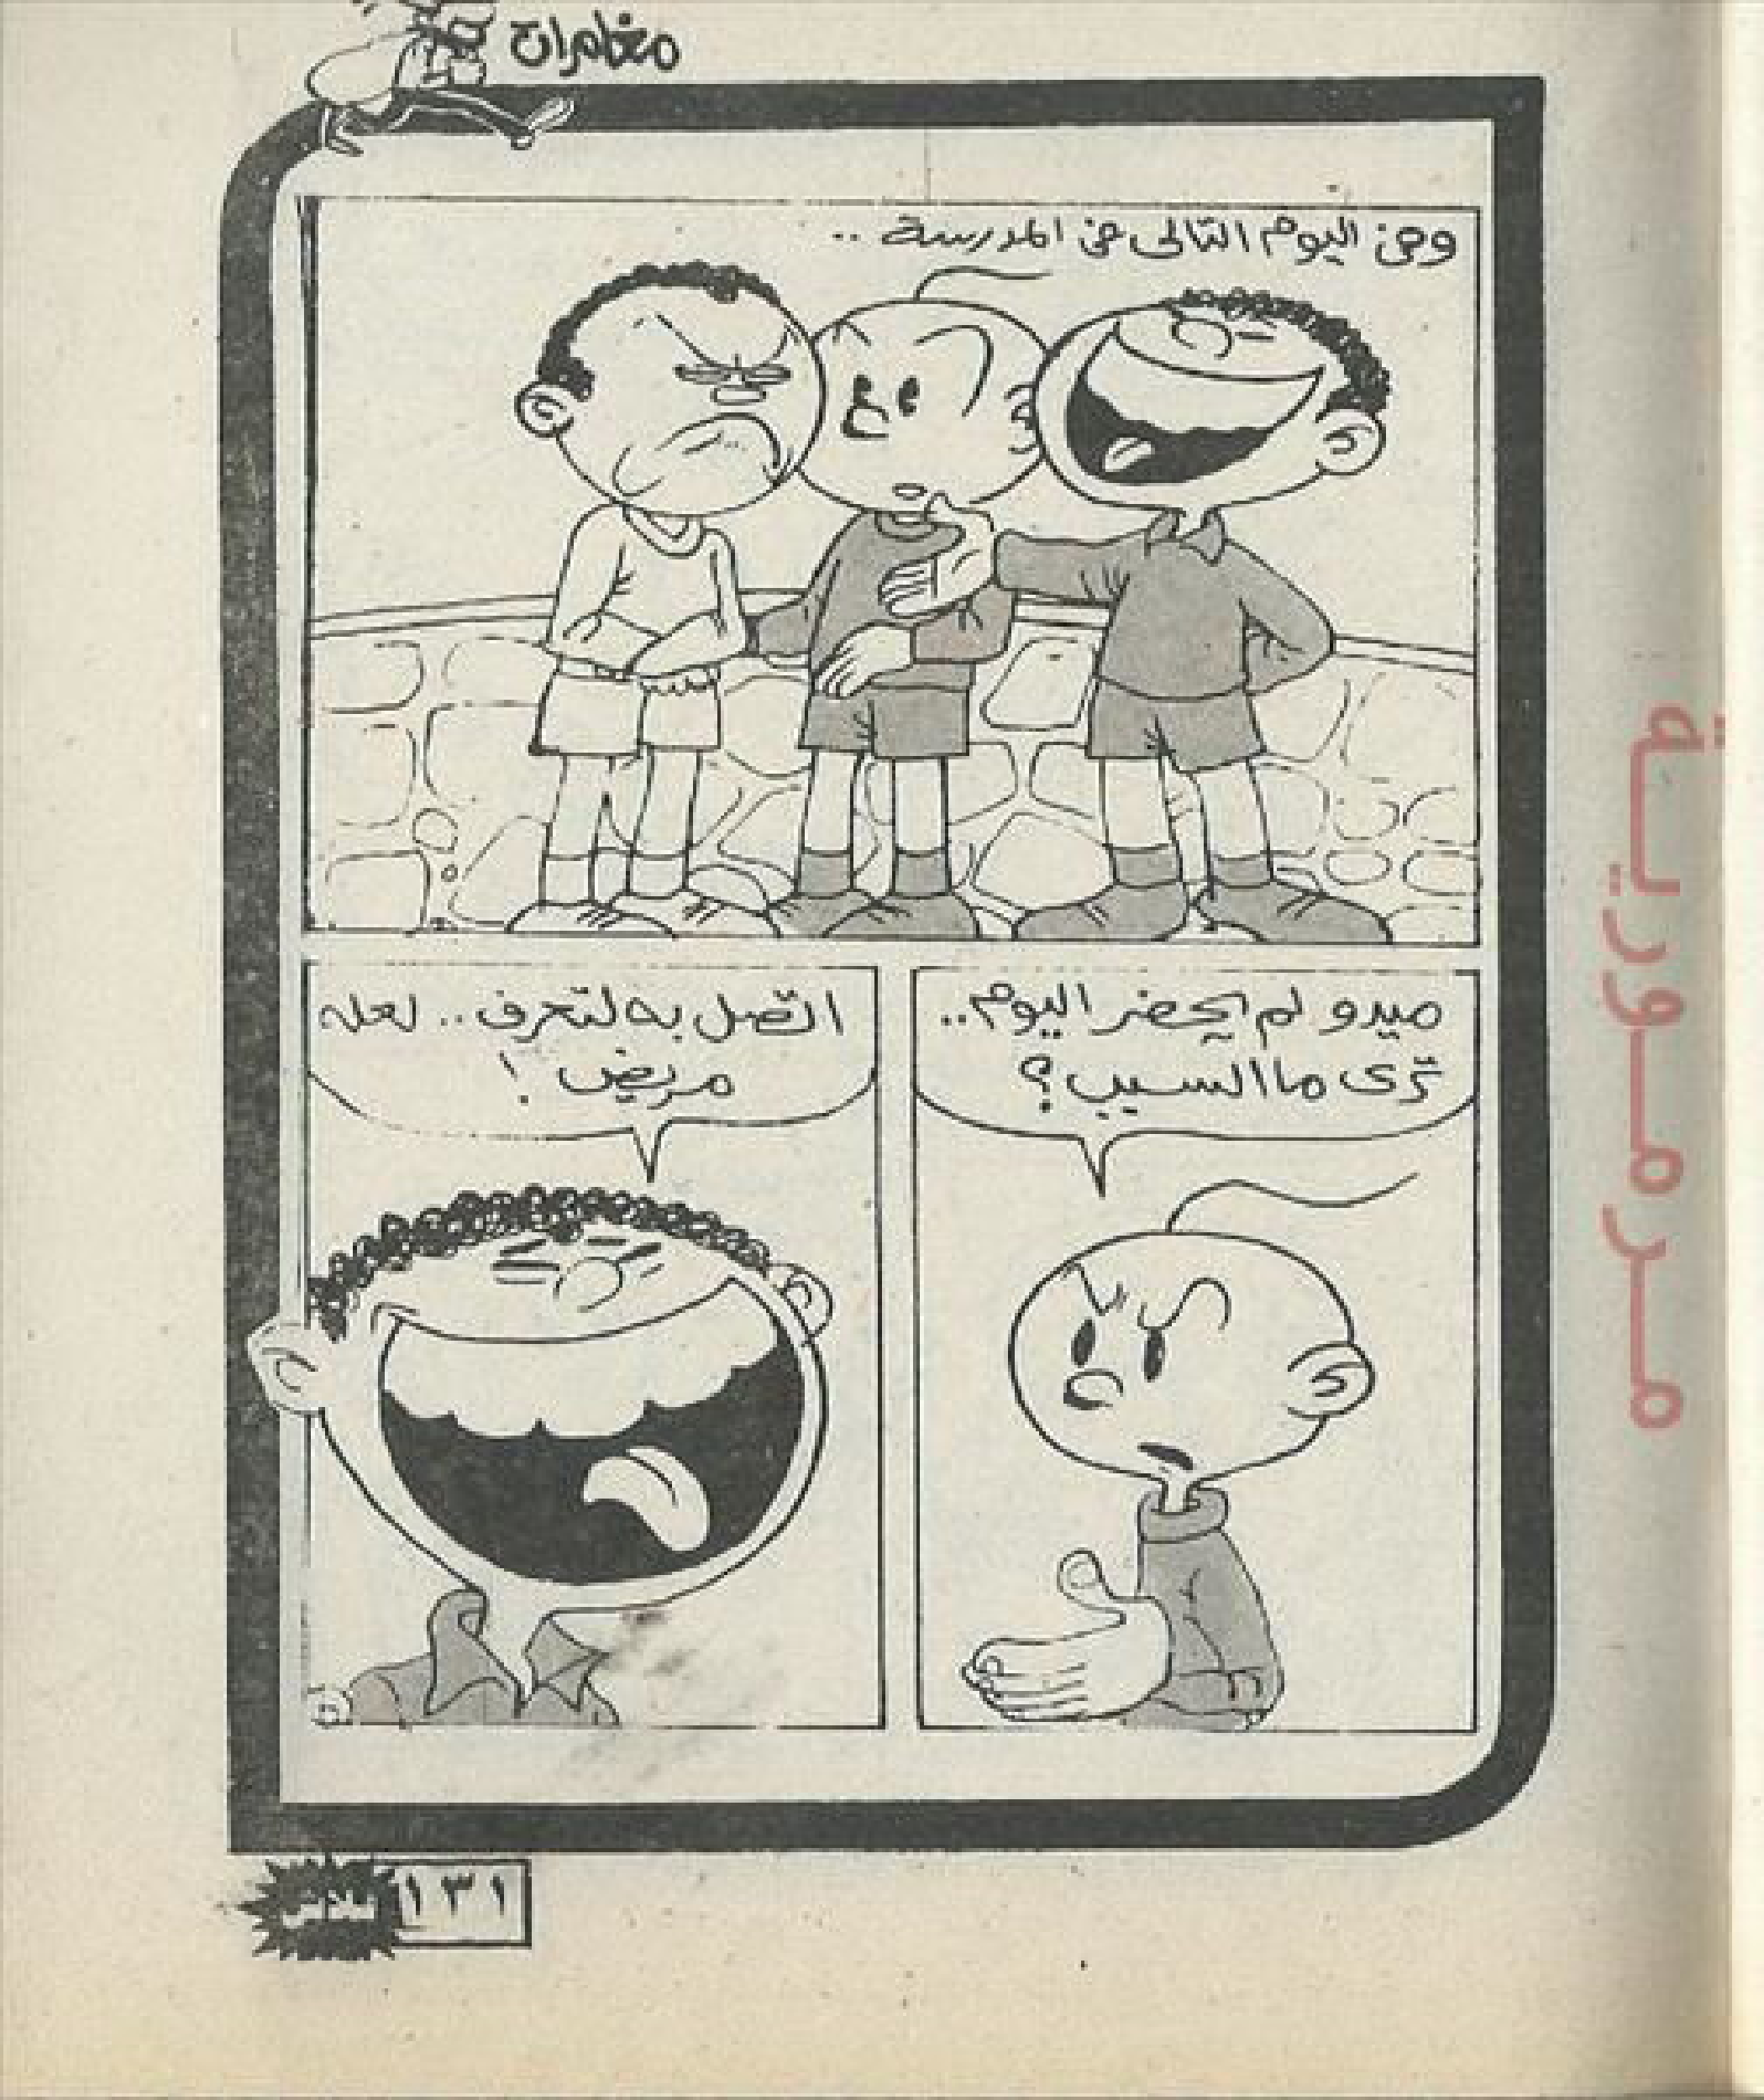 مغامرات
وفى اليوم التالى فى المدرسة ..
ميدو لم يحضر اليوم..
تُرى ما السبب؟
اتصل به لتعرف.. لعله
مريض !
١٣١
مرمورية